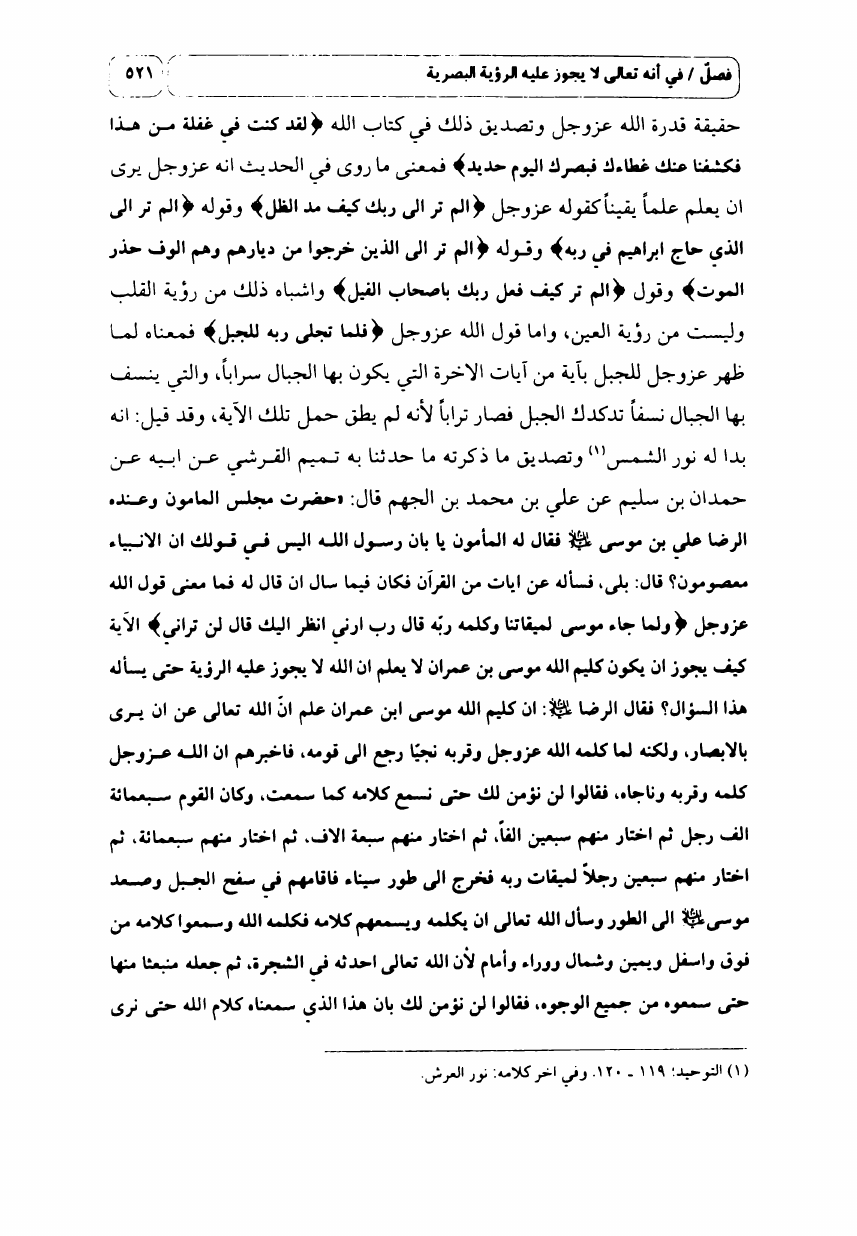 فصلٌ / في أنه تعالى لا يجوز عليه الرؤية البصرية ٥٢١
حقيقة قدرة الله عزوجل وتصديق ذلك في كتاب الله ﴿لقد كنت في غفلة من هذا
فكشفنا عنك غطاءك فبصرك اليوم حديد﴾ فمعنى ما روى في الحديث انه عزوجل يرى
ان يعلم علماً يقيناً كقوله عزوجل ﴿الم تر الى ربك كيف مد الظل﴾ وقوله ﴿الم تر الى
الذي حاج ابراهيم في ربه﴾ وقوله ﴿الم تر الى الذين خرجوا من ديارهم وهم الوف حذر
الموت﴾ وقول ﴿الم تر كيف فعل ربك باصحاب الفيل﴾ واشباه ذلك من رؤية القلب
وليست من رؤية العين، واما قول الله عزوجل ﴿فلما تجلى ربه للجبل﴾ فمعناه لما
ظهر عزوجل للجبل بآية من آيات الاخرة التي يكون بها الجبال سراباً، والتي ينسف
بها الجبال نسفاً تدكدك الجبل فصار تراباً لأنه لم يطق حمل تلك الآية، وقد قيل: انه
بدا له نور الشمس(١) وتصديق ما ذكرته ما حدثنا به تميم القرشي عن ابيه عن
حمدان بن سليم عن علي بن محمد بن الجهم قال: «حضرت مجلس المامون وعنده
الرضا علي بن موسى ﷺ فقال له المأمون يا بان رسول الله اليس في قولك ان الانبياء
معصومون؟ قال: بلى، فسأله عن ايات من القرآن فكان فيما سال ان قال له فما معنى قول الله
عزوجل ﴿ولما جاء موسى لميقاتنا وكلمه ربّه قال رب ارني انظر اليك قال لن تراني﴾ الآية
كيف يجوز ان يكون كليم الله موسى بن عمران لا يعلم ان الله لا يجوز عليه الرؤية حتى يسأله
هذا السؤال؟ فقال الرضا ﷺ: ان كليم الله موسى ابن عمران علم انّ الله تعالى عن ان يرى
بالابصار، ولكنه لما كلمه الله عزوجل وقربه نجيّا رجع الى قومه، فاخبرهم ان الله عزوجل
كلمه وقربه وناجاه، فقالوا لن نؤمن لك حتى نسمع كلامه كما سمعت، وكان القوم سبعمائة
الف رجل ثم اختار منهم سبعين الفاً، ثم اختار منهم سبعة الاف، ثم اختار منهم سبعمائة، ثم
اختار منهم سبعين رجلاً لميقات ربه فخرج الى طور سيناء فاقامهم في سفح الجبل وصعد
موسى ﷺ الى الطور وسأل الله تعالى ان يكلمه ويسمعهم كلامه فكلمه الله وسمعوا كلامه من
فوق واسفل ويمين وشمال ووراء وأمام لأن الله تعالى احدثه في الشجرة، ثم جعله منبعثا منها
حتى سمعوه من جميع الوجوه، فقالوا لن نؤمن لك بان هذا الذي سمعناه كلام الله حتى نرى
(١) التوحيد: ١١٩ ـ ١٢٠. وفي اخر كلامه: نور العرش.